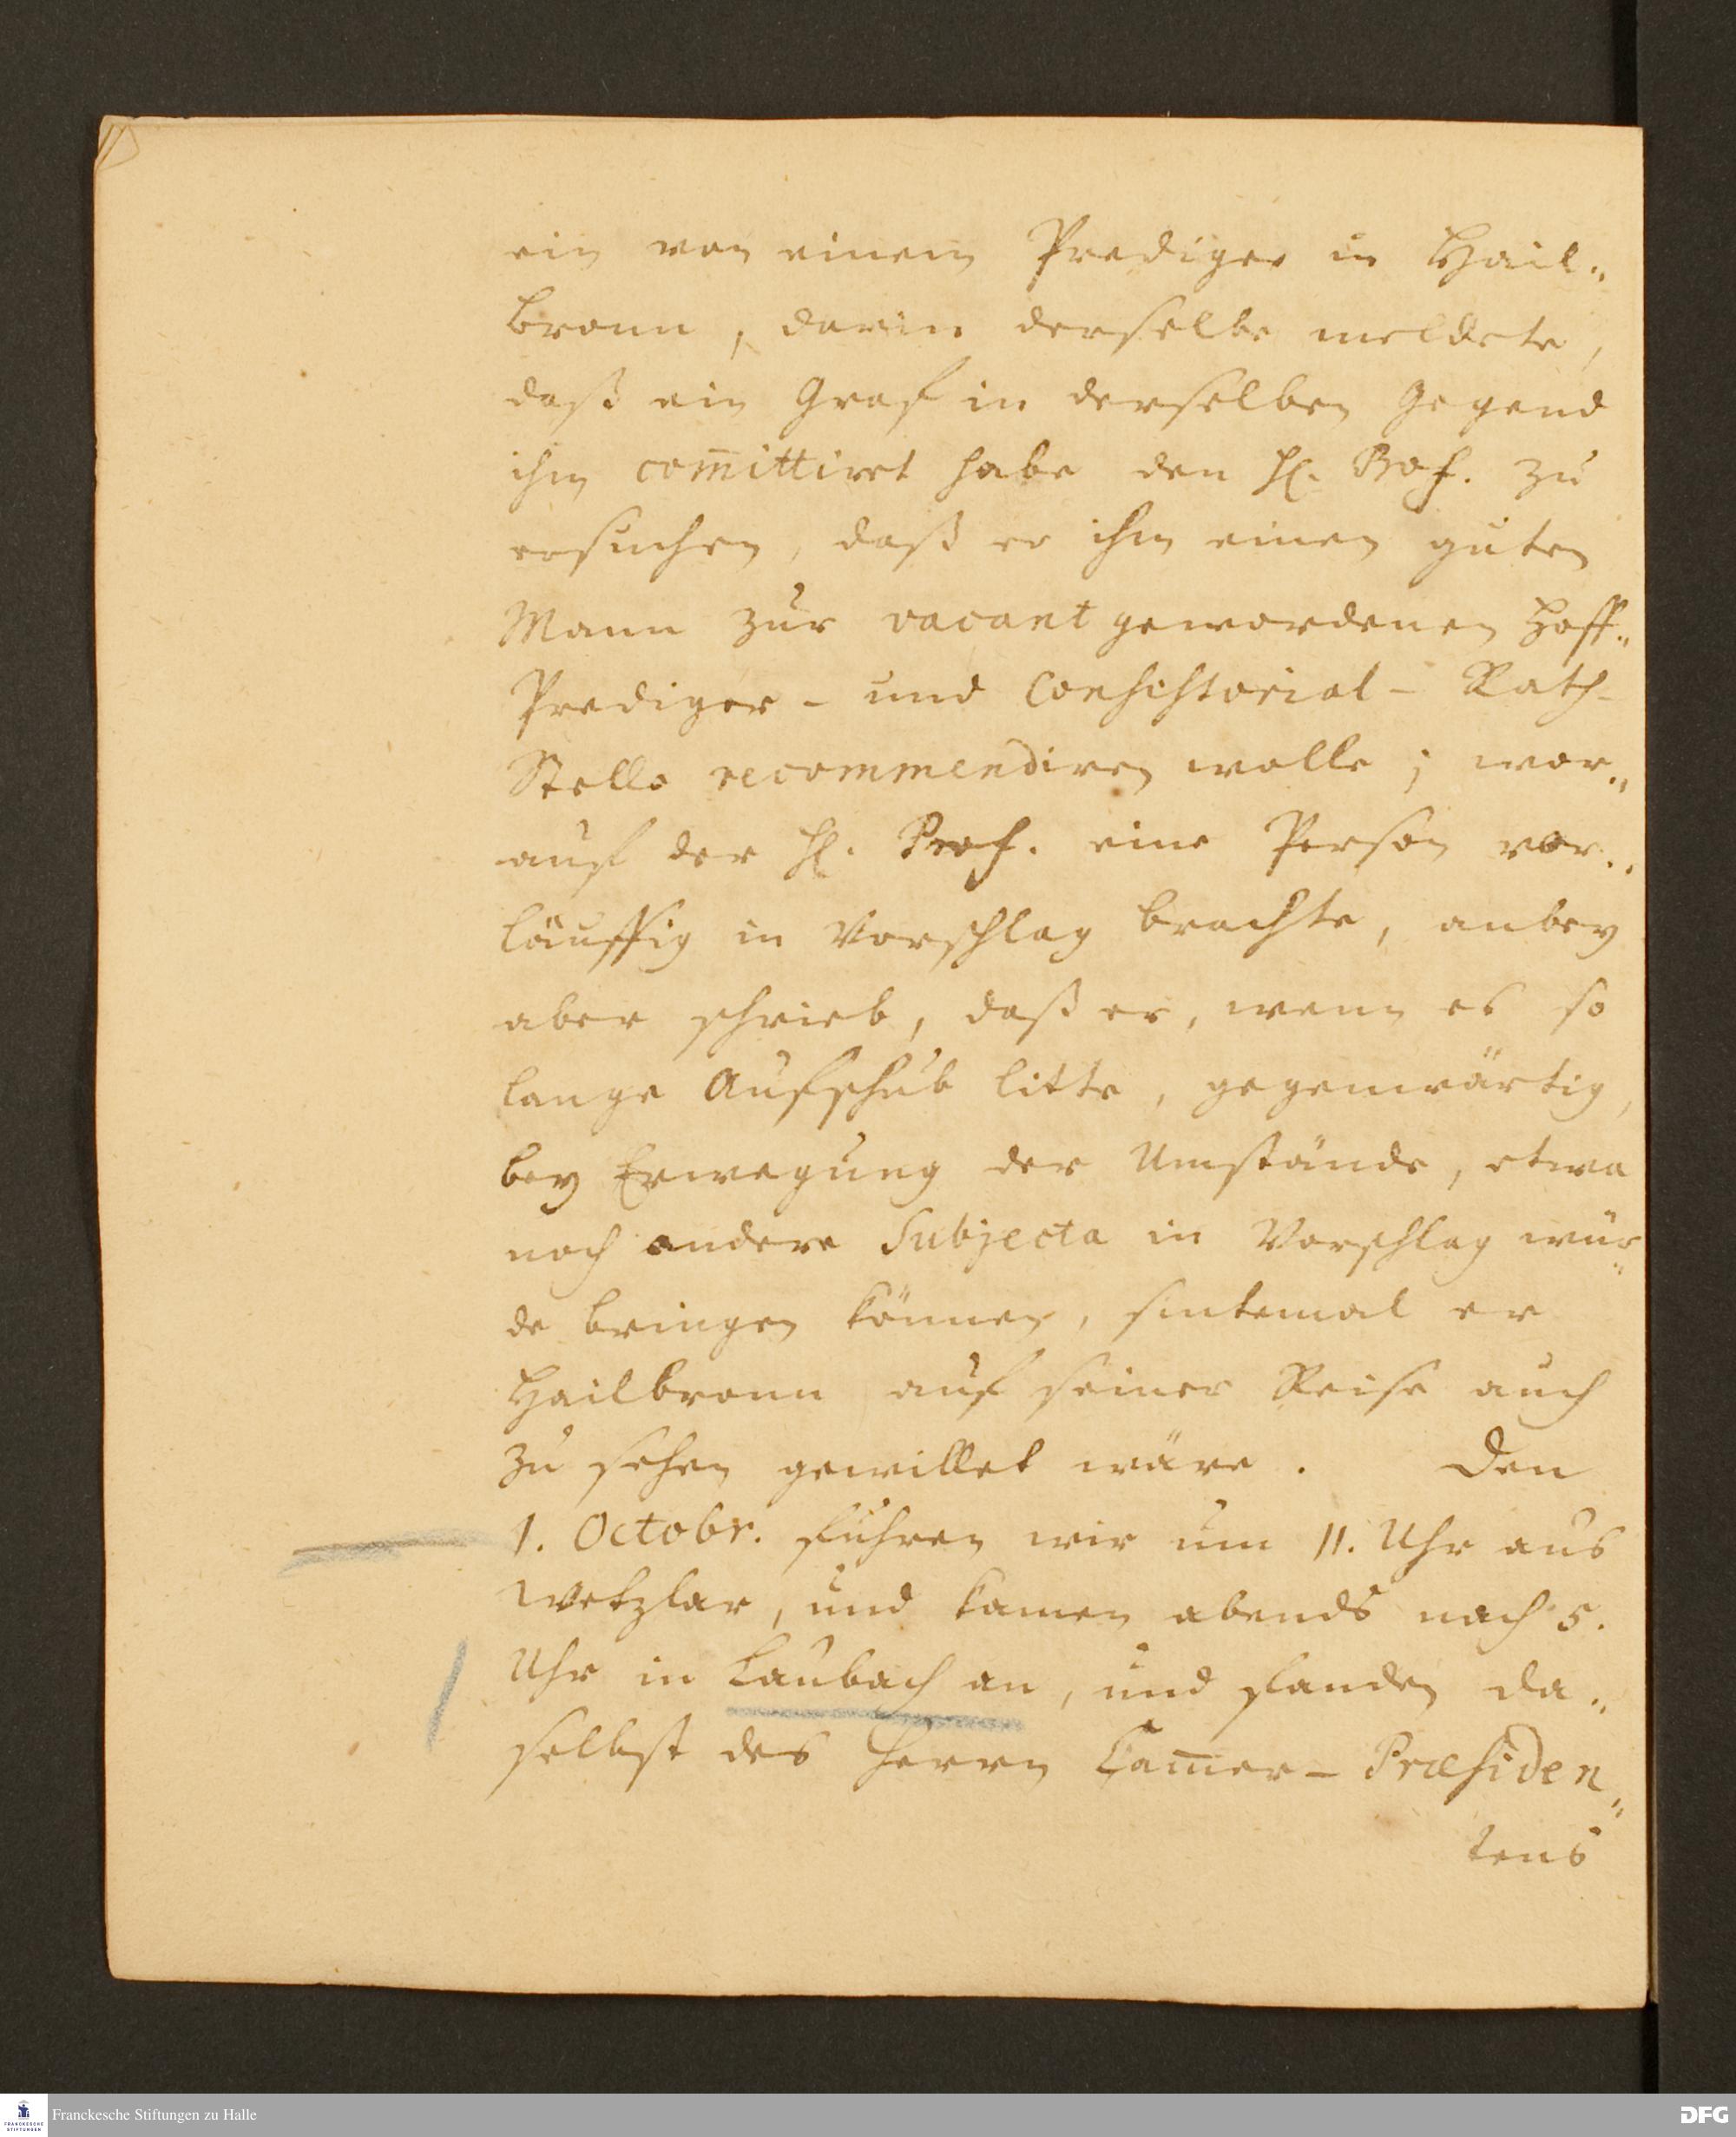 ein von einem Prediger in Hail„
bronn, darin derselbe meldete,
daß ein Graf in derselben Gegend
ihm com̅ittiret habe den H. Prof. zu
ersuchen, daß er ihm einen guten
Mann zur vacant gewordenen Hoff„
Prediger- und Consistorial-Rath-
Stelle recommendiren wolle; wor„
auf der H. Prof. eine Person vor„
läuffig in Vorschlag brachte, anbey
aber schrieb, daß er, wenn es so
lange Aufschub litte, gegenwärtig,
bey Erwegung der Umstände, etwa
noch andere Subjecta in Vorschlag wür„
de bringen können, sintemal er
Hailbronn auf seiner Reise auch
zu sehen gewillet wäre. Den
1. Octobr. fuhren wir um 11. Uhr aus
Wetzlar, und kamen abends nach 5.
Uhr in Laubach an, und fanden da„
selbst des Herrn Cam̅er-Præsiden„
tens
Franckesche Stiftungen zu Halle
FRANCKESCHE STIFTUNGEN
DFG